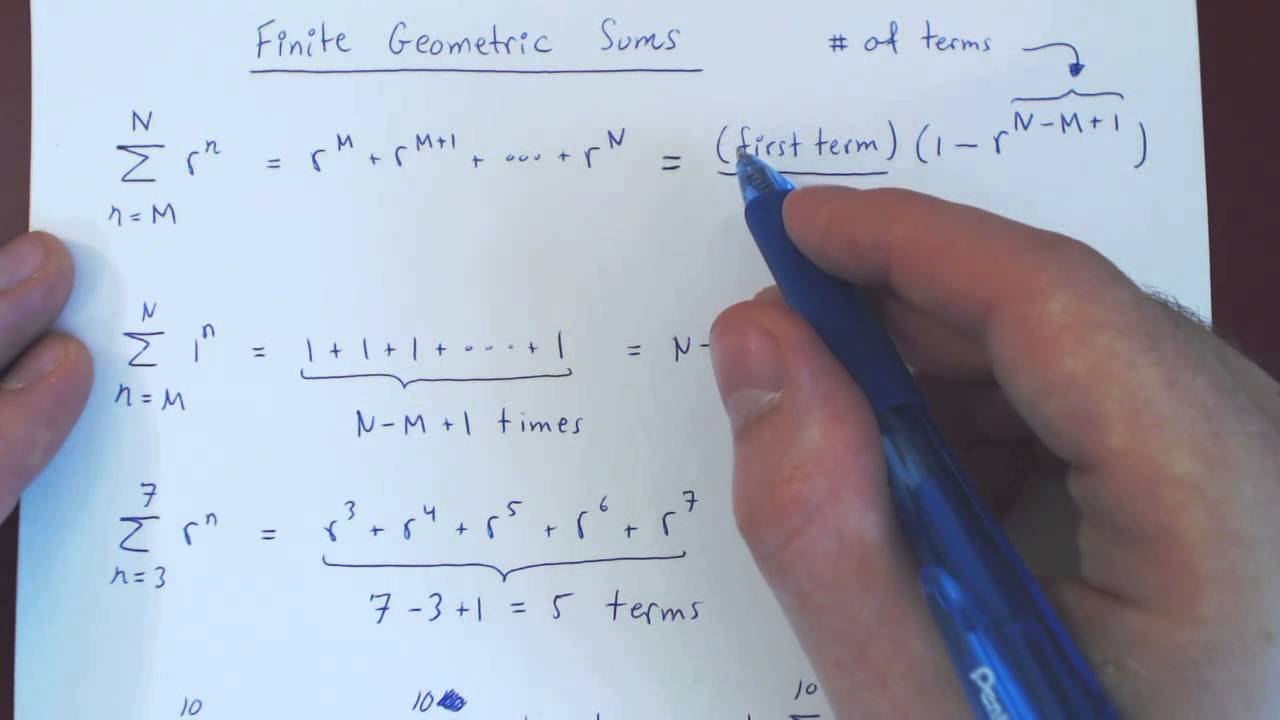 Finite Geometric Sums
# of terms
N
∑ rⁿ = r^M + r^(M+1) + ··· + r^N = (first term) (1 − r^(N−M+1))
n=M
N
∑ 1ⁿ = 1 + 1 + 1 + ··· + 1 = N−
n=M
N−M+1 times
7
∑ rⁿ = r³ + r⁴ + r⁵ + r⁶ + r⁷
n=3
7−3+1 = 5 terms
10 10 10